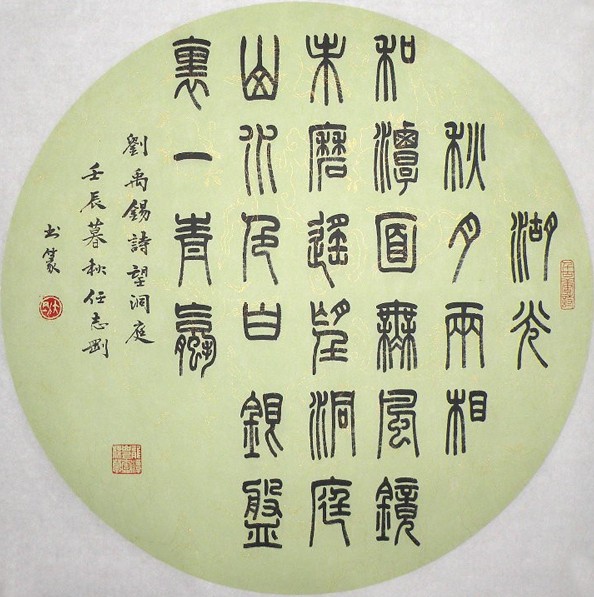 湖光
秋月兩相
和潭面無風鏡
未磨遙望洞庭
山水色白銀盤
裏一青螺
劉禹錫詩望洞庭
壬辰暮秋任志剛
书篆